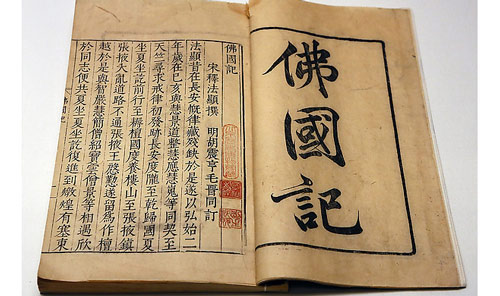 佛國記
佛國記
宋釋法顯撰
明胡震亨毛晉同訂
法顯昔在長安慨律藏殘缺於是遂以弘始二
年歲在己亥與慧景道整慧應慧嵬等同契至
天竺尋求戒律初發跡長安度隴至乾歸國夏
坐夏坐訖前行至耨檀國度養樓山至張掖鎮
張掖大亂道路不通張掖王慇懃遂留爲作檀
越於是與智嚴慧簡僧紹寶雲僧景等相遇欣
於同志便共夏坐夏坐訖復進到燉煌有塞東